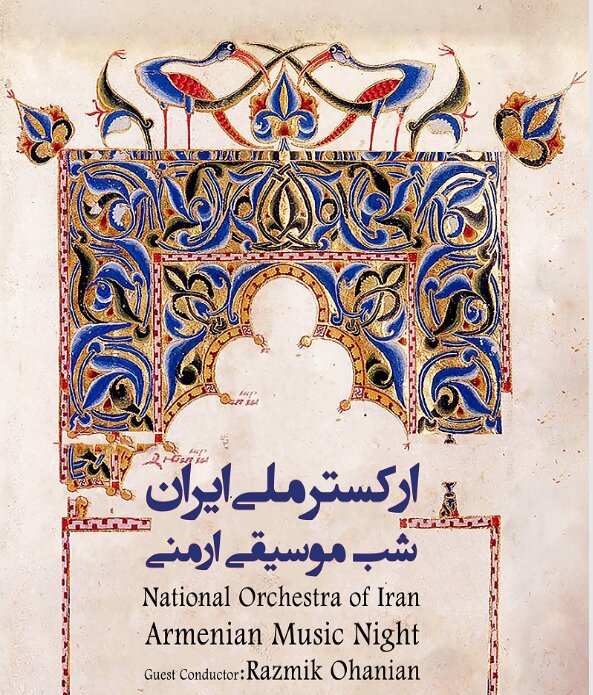 ارکستر ملی ایران
شب موسیقی ارمنی
National Orchestra of Iran
Armenian Music Night
Guest Conductor:Razmik Ohanian